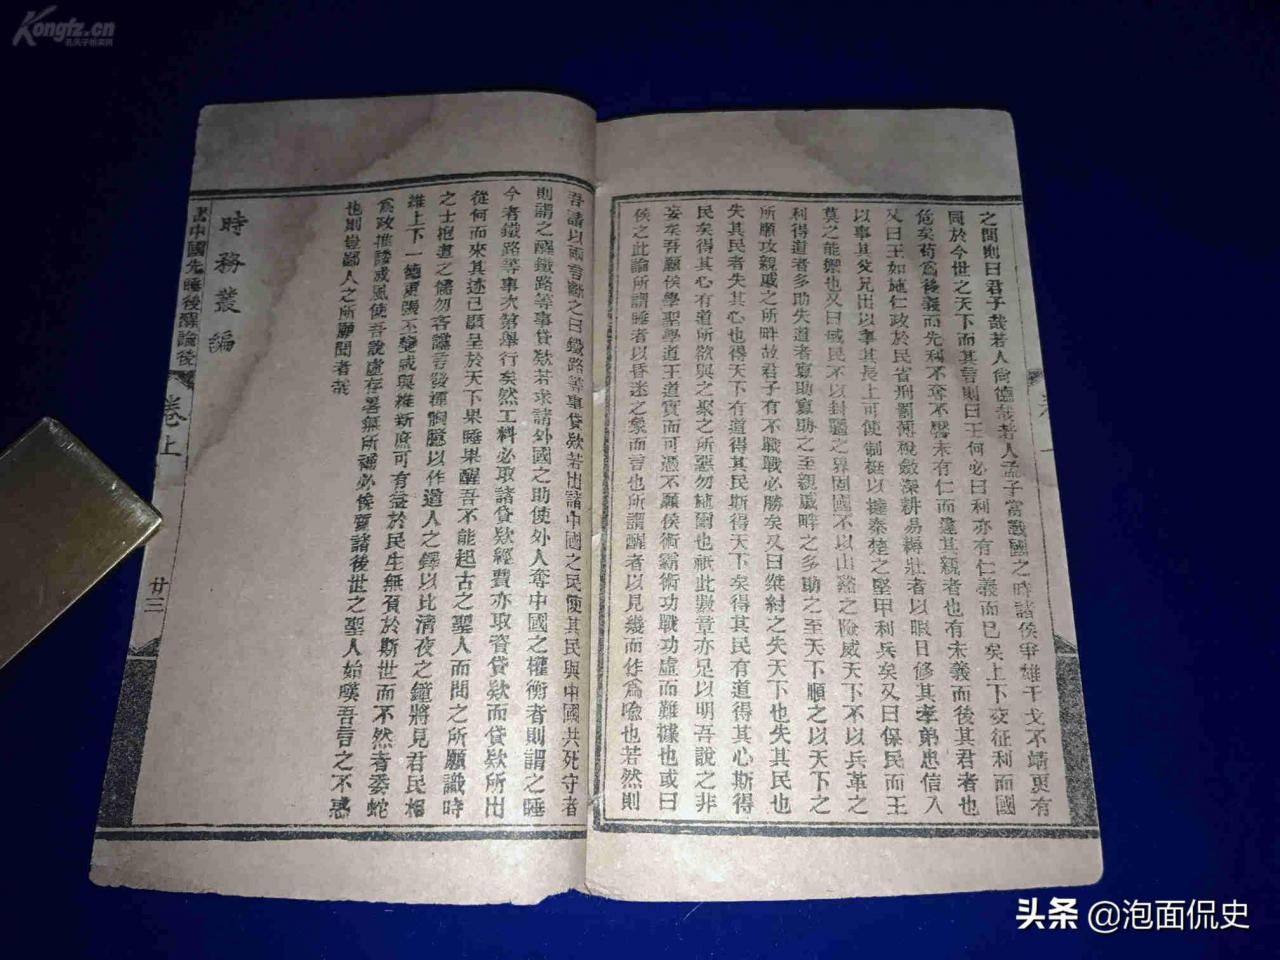 Kongfz.cn
孔夫子拍卖网
之間則曰君子哉若人尙德哉若人孟子當戰國之時諸侯爭雄干戈不靖更有
同於今世之天下而其言則曰王何必曰利亦有仁義而已矣上下交征利而國
危矣苟爲後義而先利不奪不饜未有仁而遺其親者也未有義而後其君者也
又曰王如施仁政於民省刑罰薄稅斂深耕易耨壯者以暇日修其孝弟忠信入
以事其父兄出以事其長上可使制梃以撻秦楚之堅甲利兵矣又曰保民而王
莫之能禦也又曰域民不以封疆之界固國不以山谿之險威天下不以兵革之
利得道者多助失道者寡助寡助之至親戚畔之多助之至天下順之以天下之
所順攻親戚之所畔故君子有不戰戰必勝矣又曰桀紂之失天下也失其民也
失其民者失其心也得天下有道得其民斯得天下矣得其民有道得其心斯得
民矣得其心有道所欲與之聚之所惡勿施爾也祇此數章亦足以明吾說之非
妄矣吾願侯學聖學道王道實而可憑不願侯術霸術功戰功虛而難據也或曰
侯之此論所謂睡者以昏迷之象而言也所謂醒者以見幾而作爲喻也若然則
吾請以兩言斷之曰鐵路等事貸欵若出諸中國之民使其民與中國共死守者
則謂之醒鐵路等事貸欵若求諸外國之助使外人奪中國之權衡者則謂之睡
今者鐵路等事次第舉行矣然工料必取諸貸欵經費亦取資貸欵而貸欵所出
從何而來其迹已顯呈於天下果睡果醒吾不能起古之聖人而問之所願識時
之士抱道之儒勿吝讜言發揮胸臆以作遒人之鐸以比清夜之鐘將見君民相
維上下一德更張丕變咸與維新庶可有益於民生無負於斯世而不然者委蛇
爲政推諉成風使吾說虛存署無所補必俟質諸後世之聖人始嘆吾言之不惑
也則豈鄙人之所願聞者哉
時務叢編
書中國先睡後醒論後
卷上
廿三
头条 @泡面侃史